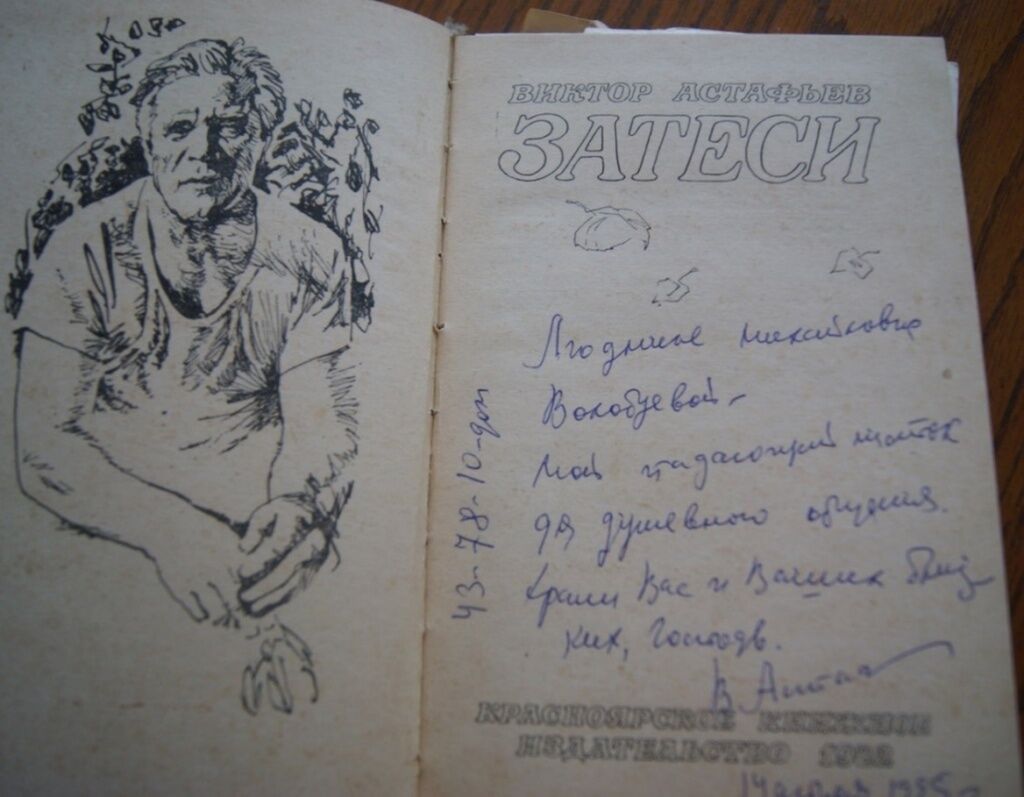 ВИКТОР АСТАФЬЕВ
ЗАТЕСИ
Людмиле Михайловне
Воробьевой –
Мой
для душевного общения.
Храни Вас и Ваших близ
ких, Господь.
В Астаф
43-78-10-дом
КРАСНОЯРСКОЕ КНИЖНОЕ
ИЗДАТЕЛЬСТВО 1982
14 1985 г